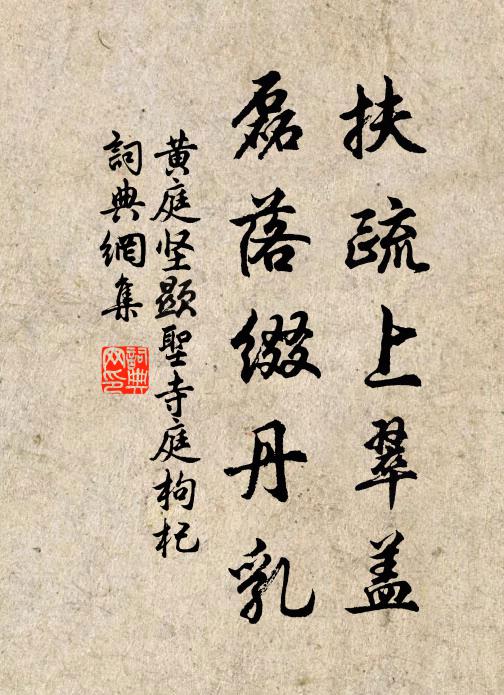 扶疏上翠盖
磊落缀丹乳
黄庭坚顯聖寺庭枸杞
詞典網集
詞典网印